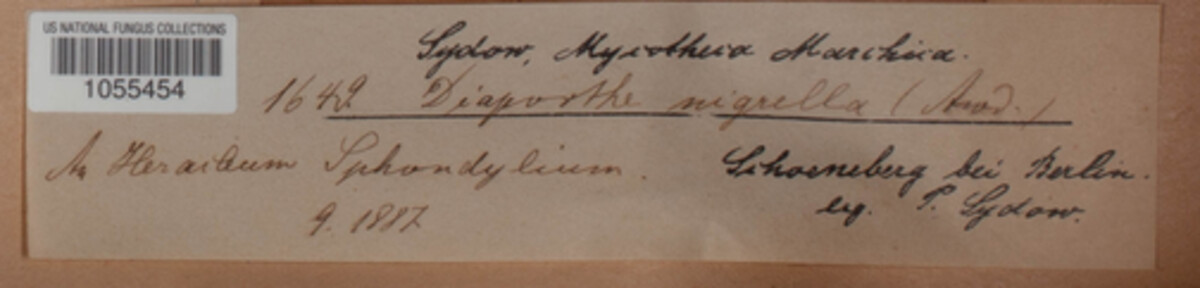 US NATIONAL FUNGUS COLLECTIONS
1055454
Sydow, Mycotheca Marchica.
1649. Diaporthe nigrella (Awd.)
An Heracleum Sphondylium.
9. 1887
Schoeneberg bei Berlin.
leg. P. Sydow.